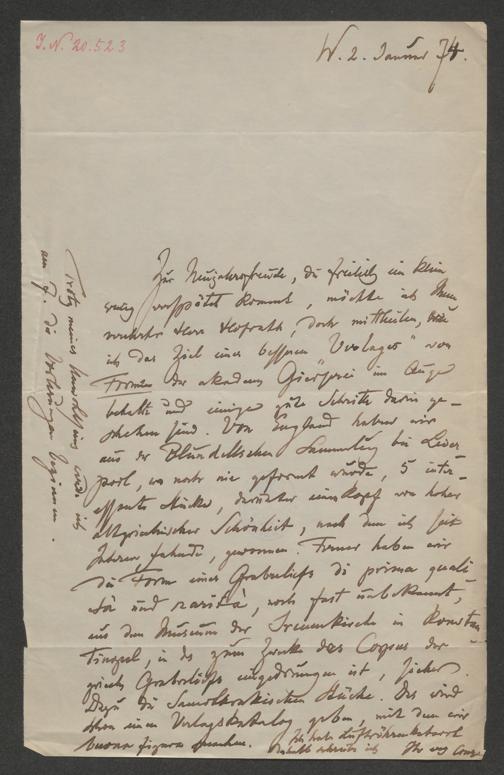 I.N. 20.523
W. 2. Januar 74.
Zur Neujahrsfreude, die freilich ein klein
wenig verspätet kommt, möchte ich Ihnen
verehrter Herr Hofrath, doch mittheilen, wie
ich das Ziel eines besseren „Verlages" von
Formen der akadem Gießerei im Auge
behalte und einige gute Schritte darin ge-
schehen sind. Von England haben wir
aus der Blundellschen Sammlung bei Liver
pool, wo noch nie geformt wurde, 5 inter-
essante Stücke, darunter einen Kopf von hoher
altgriechischer Schönheit, nach dem ich seit
Jahren fahnde, gewonnen. Ferner haben wir
die Form eines Grabreliefs di prima quali
tà und rarità, noch fast unbekannt,
aus dem Museum der Irenenkirche in Konstan
tinopel, in das zum Zwecke des Corpus der
griech Grabreliefs eingedrungen ist, sicher.
Dazu die Samothrakischen Stücke. Das wird
schon einen Verlagskatalog geben, mit dem wir
buona figura machen.
Ich habe Luftröhrenkatarrh
deshalb schreibe ich
Ihr erg Conze
Trotz meines Unwohlseins werde ich
am 7. die Vorlesungen beginnen.